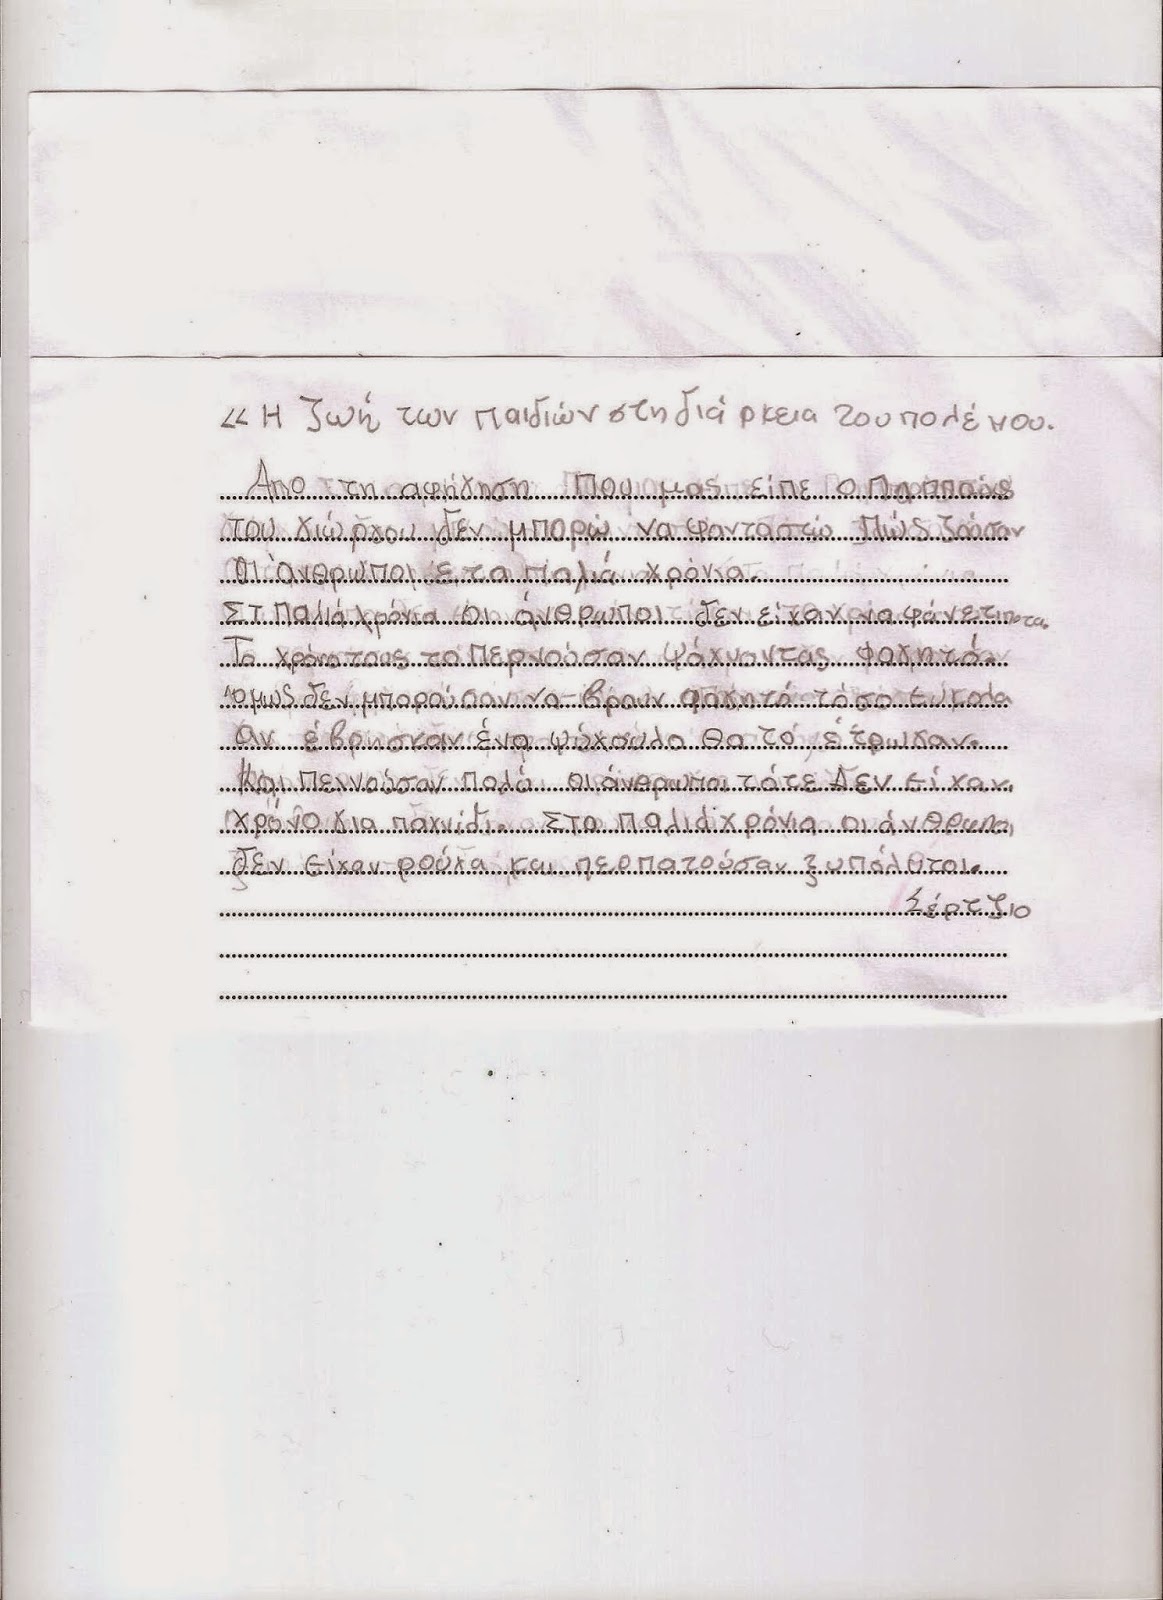 << Η ζωή των παιδιών στη διά ρκεια του πολέ μου.
Απο τη αφήγηση Που μας είπε ο Παππούς
του γιώργου δεν μπορώ να φανταστώ Πώς ζούσαν
Οι άνθρωποι ε τα παλιά χρόνια.
Στ Παλιά χρόνια οι άνθρωποι δεν είχαν να φάνε τιποτα.
Το χρόνο τους το Περνούσαν ψάχνοντας φαγητό.
όμως δεν μπορούσαν να βρουν φαγητό τόσο εύκολα
αν έβρησκαν ένα ψύχουλο θα το έτρωγαν.
Και Πεινούσαν πολύ οι άνθρωποι τότε Δεν είχαν
χρόνο για παχνίδι. Στα παλιά χρόνια οι άνθρωποι
δεν είχαν ρούχα και περπατούσαν ξυπόλητοι.
Σέρτζιο